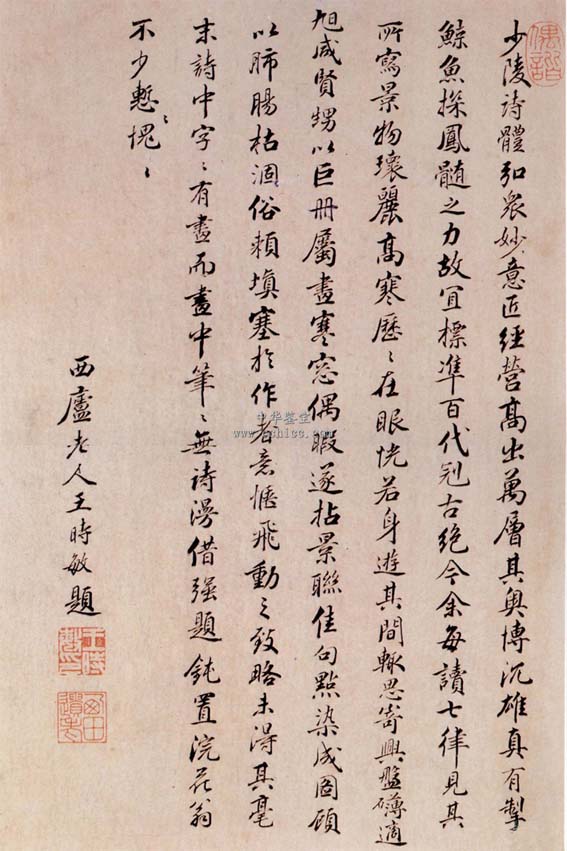 少陵詩體弘衆妙意匠經營高出萬層其奥博沉雄真有掣
鯨魚探鳳髓之力故宜標準百代冠古絶今余每讀七律見其
所寫景物瓌麗高寒歷〻在眼恍若身遊其間輙思寄興盤礴適
旭咸賢甥以巨冊屬畫寒窓偶暇遂拈景聯佳句點染成圖顧
以肺腸枯涸俗賴填塞於作者意愜飛動之致略未得其毫
末詩中字〻有畫而畫中筆〻無詩漫借強題鈍置浣花翁
不少慙〻愧〻
西廬老人王時敏題
偶諧
中华鉴宝